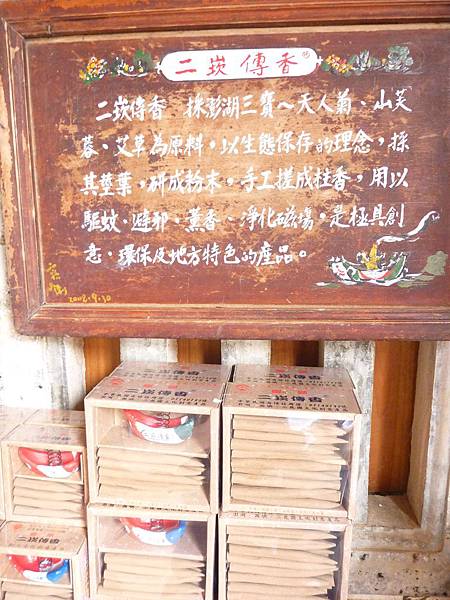 二崁傳香
二崁傳香 採澎湖三寶～天人菊、山芙
蓉、艾草為原料，以生態保存的理念，採
其莖葉，研成粉末。手工搓成柱香，用以
驅蚊、避邪、薰香、淨化磁場，是極具創
意、環保及地方特色的產品。
2002.9.30
二崁傳香
二崁傳香
二崁傳香
二崁傳香